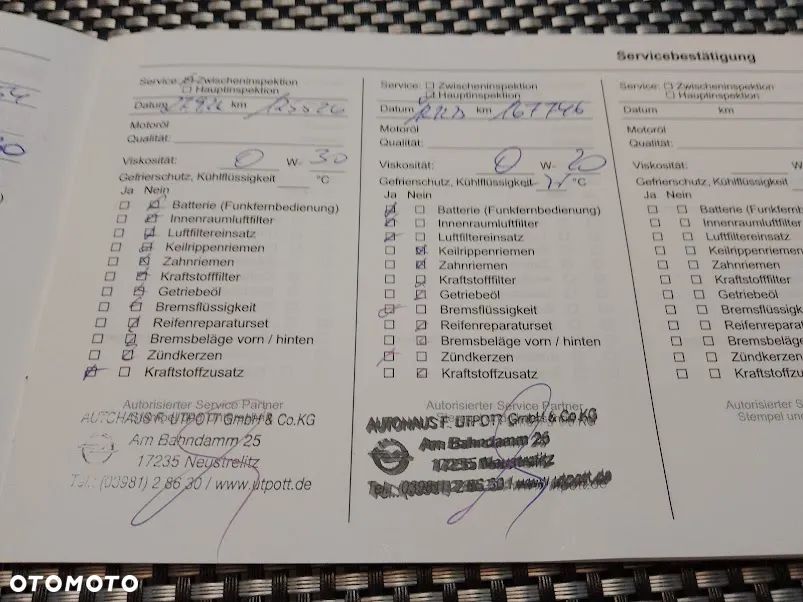 Servicebestätigung
Service: Zwischeninspektion
Hauptinspektion
Datum km
Motoröl
Qualität:
Viskosität: 0 W- 30
Gefrierschutz, Kühlflüssigkeit °C
Ja Nein
Batterie (Funkfernbedienung)
Innenraumluftfilter
Luftfiltereinsatz
Keilrippenriemen
Zahnriemen
Kraftstofffilter
Getriebeöl
Bremsflüssigkeit
Reifenreparaturset
Bremsbeläge vorn / hinten
Zündkerzen
Kraftstoffzusatz
Autorisierter Service Partner
AUTOHAUS F. UTPOTT GmbH & Co.KG
Am Bahndamm 25
17235 Neustrelitz
Tel.: (03981) 2 86 30 / www.utpott.de
Service: Zwischeninspektion
Hauptinspektion
Datum km 167746
Motoröl
Qualität:
Viskosität: 0 W- 20
Gefrierschutz, Kühlflüssigkeit °C
Ja Nein
Batterie (Funkfernbedienung)
Innenraumluftfilter
Luftfiltereinsatz
Keilrippenriemen
Zahnriemen
Kraftstofffilter
Getriebeöl
Bremsflüssigkeit
Reifenreparaturset
Bremsbeläge vorn / hinten
Zündkerzen
Kraftstoffzusatz
Autorisierter Service Partner
AUTOHAUS F. UTPOTT GmbH & Co.KG
Am Bahndamm 25
17235 Neustrelitz
Tel.: (03981) 2 86 30 / www.utpott.de
Service: Zwischeninspektion
Hauptinspektion
Datum km
Motoröl
Qualität:
Viskosität: W
Gefrierschutz, Kühlflüssigkeit
Ja Nein
Batterie (Funkfernbedienung)
Innenraumluftfilter
Luftfiltereinsatz
Keilrippenriemen
Zahnriemen
Kraftstofffilter
Getriebeöl
Bremsflüssigkeit
Reifenreparaturs
Bremsbeläge vor
Zündkerzen
Kraftstoffzu
Autorisierter S
Stempel un
OTOMOTO